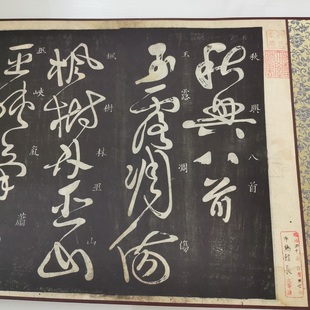 秋興八首
秋興八首
玉露凋傷
玉露凋傷
楓樹林巫山
楓樹林巫山
巫峽氣
巫峽氣蕭